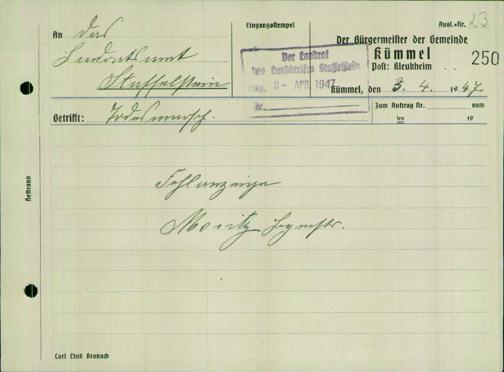 Ausl.-Nr. 23
An das
Landratsamt
Staffelstein
Eingangsstempel
Der Bürgermeister der Gemeinde
Kümmel
Post: Kleukheim
250
Der Landrat
des Landkreises Staffelstein
eing. 8- APR. 1947
Nr.
Kümmel, den 3. 4. 1947.
Zum Auftrag Nr. vom
19
Betrifft: Todesmarsch.
Fehlanzeige
Moritz Bürgmstr.
Heftrand
Carl Link Kronach